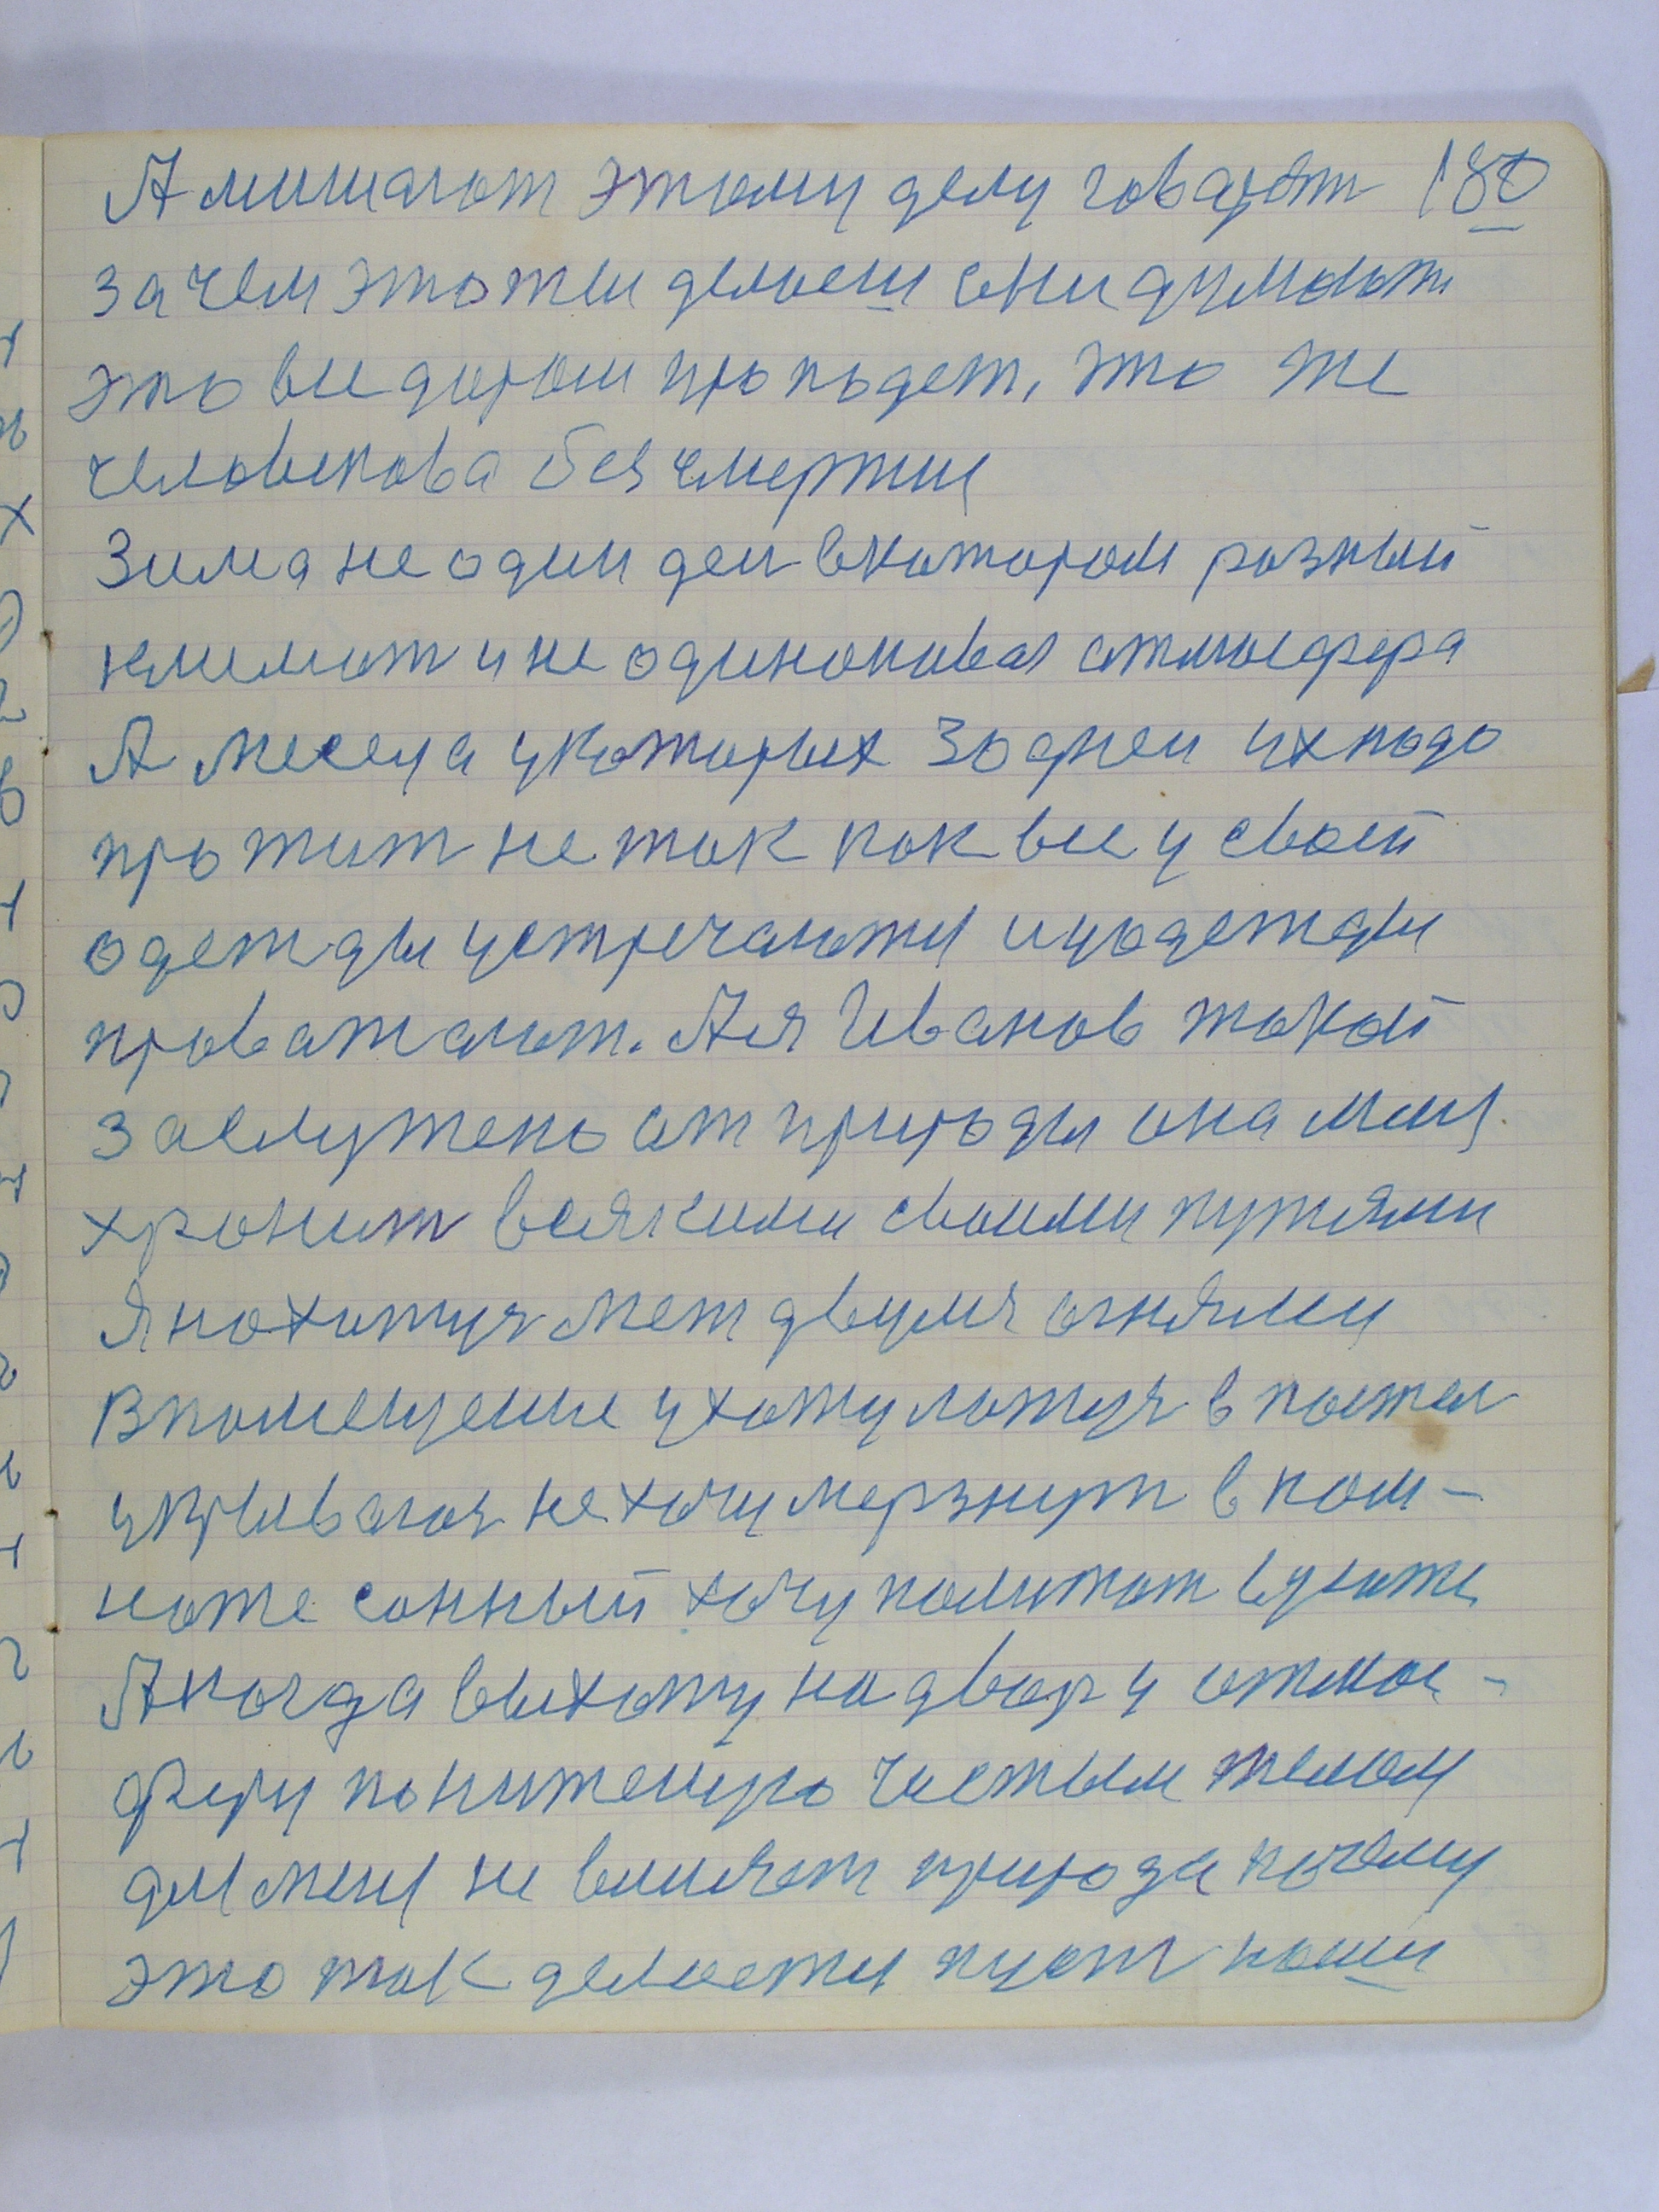 А мишают этому делу говарят 180
зачем это ты делаеш они думают
это все даром пропадет, это же
человекова безсмертия
Зима не один ден вкотором разный
климат и не одинокивая атмосфера
А месеца укоторых 30 дней их надо
прожит не так как все у своей
одежды устречаютця и уодежды
проважают. А я Иванов такой
заслужено от природы она миня
хронит всякими своими путями
Я нохожуся меж двумя огнями
В помещение ухожу ложуся в постел
укрываюся не хочу мерзнут в ком-
ноте сонный хочу полижат вуюте
А когда выхожу на двор у атмос-
феру пониженую чистым телом
для меня не влияет природа почему
это так делаетця пуст наши